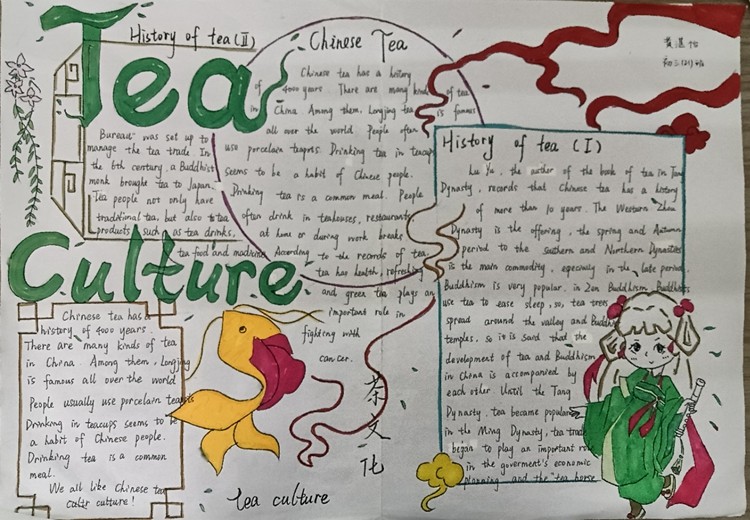 Tea
Culture
History of tea (II)
Bureau was set up to
manage the tea trade In
the 6th century, a Buddhist
monk brought tea to Japan.
Tea people not only have
traditional tea, but also tea
products such as tea drinks,
tea food and medicine.
Chinese Tea
Chinese tea has a history
of 4000 years. There are many kinds of tea
in China. Among them, Longjing tea is famous
all over the world. People often
use porcelain teapots. Drinking tea in teacups
seems to be a habit of Chinese people.
Drinking tea is a common meal. People
often drink in teahouses, restaurants
at home or during work breaks
According to the records of tea
tea has health, refreshing
and green tea plays an
important role in
fighting with
cancer.
黄湛怡
初三(9)班
History of tea (I)
Lu Yu, the author of the book of tea in Tang
Dynasty, records that Chinese tea has a history
of more than 10 years. The Western Zhou
Dynasty is the offering, the spring and Autumn
period to the Southern and Northern Dynasties
is the main commodity, epecially in the late period.
Buddhism is very popular. in Zen Buddhism Buddhists
use tea to ease sleep, so, tea trees
spread around the valley and Buddhist
temples. so it is said that the
development of tea and Buddhism
in China is accompanied by
each other Until the Tang
Dynasty, tea became popular
in the Ming Dynasty, tea trade
began to play an important ro
in the goverment's economic
planning and the "tea horse
Chinese tea has a
history of 4000 years.
There are many kinds of tea
in China. Among them, Longjing
is famous all over the world
People usually use porcelain teapots
Drinking in teacups seems to be
a habit of Chinese people.
Drinking tea is a common
meal.
We all like Chinese tea
culture!
茶文化
tea culture